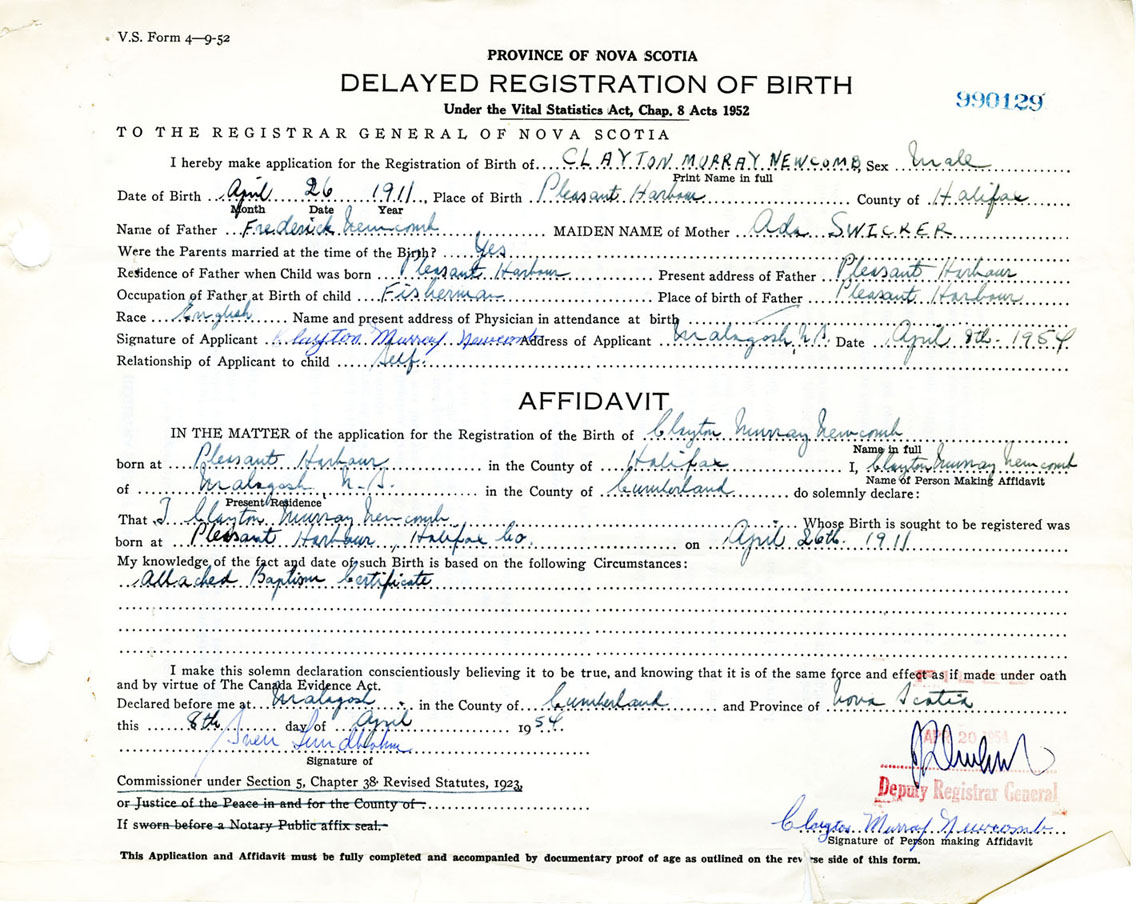 V.S. Form 4—9-52
PROVINCE OF NOVA SCOTIA
DELAYED REGISTRATION OF BIRTH
990129
Under the Vital Statistics Act, Chap. 8 Acts 1952
TO THE REGISTRAR GENERAL OF NOVA SCOTIA
I hereby make application for the Registration of Birth of CLAYTON MURRAY NEWCOMB, Sex Male
Print Name in full
Date of Birth April 26 1911, Place of Birth Pleasant Harbour County of Halifax
Month Date Year
Name of Father Frederick Newcomb MAIDEN NAME of Mother Ada SWICKER
Were the Parents married at the time of the Birth? Yes
Residence of Father when Child was born Pleasant Harbour Present address of Father Pleasant Harbour
Occupation of Father at Birth of child Fisherman Place of birth of Father Pleasant Harbour
Race English Name and present address of Physician in attendance at birth
Signature of Applicant Clayton Murray Newcomb Address of Applicant Malagash, N.S. Date April 8th. 1954
Relationship of Applicant to child Self.
AFFIDAVIT
IN THE MATTER of the application for the Registration of the Birth of Clayton Murray Newcomb
Name in full
born at Pleasant Harbour in the County of Halifax I, Clayton Murray Newcomb
Name of Person Making Affidavit
of Malagash N.S. in the County of Cumberland do solemnly declare:
Present Residence
That I Clayton Murray Newcomb Whose Birth is sought to be registered was
born at Pleasant Harbour, Halifax Co. on April 26th. 1911
My knowledge of the fact and date of such Birth is based on the following Circumstances:
Attached Baptism Certificate
I make this solemn declaration conscientiously believing it to be true, and knowing that it is of the same force and effect as if made under oath
and by virtue of The Canada Evidence Act.
Declared before me at Malagash in the County of Cumberland and Province of Nova Scotia
this 8th day of April 1954
APR 20 1954
Sven
Signature of
Commissioner under Section 5, Chapter 38 Revised Statutes, 1923,
Deputy Registrar General
or Justice of the Peace in and for the County of
If sworn before a Notary Public affix seal.
Clayton Murray Newcomb
Signature of Person making Affidavit
This Application and Affidavit must be fully completed and accompanied by documentary proof of age as outlined on the reverse side of this form.